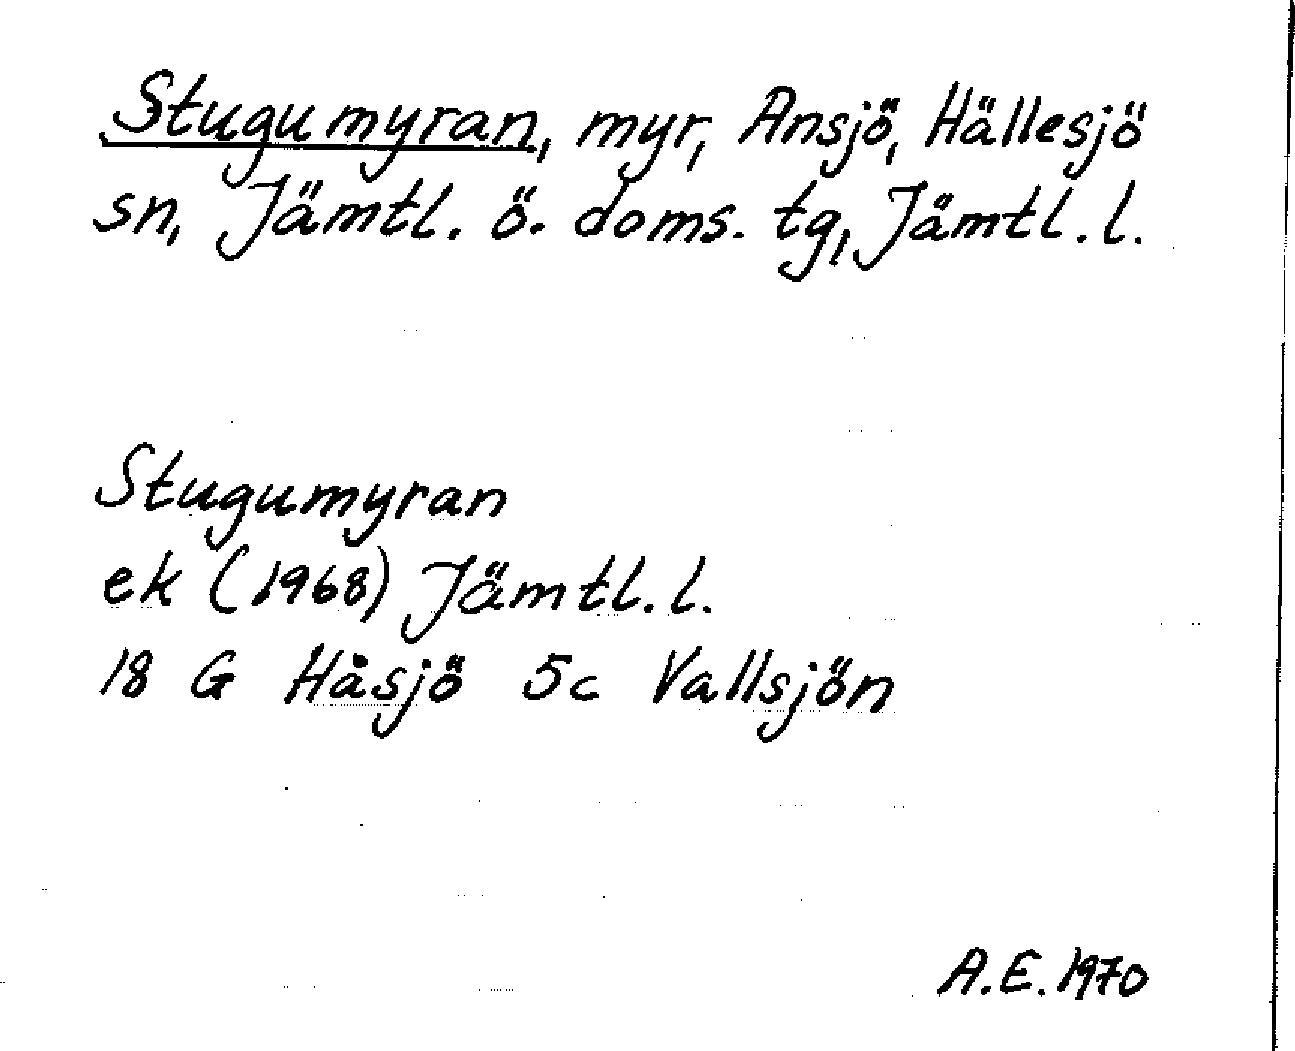 Stugumyran, myr, Ansjö, Hällesjö
sn, Jämtl. ö. doms. tg, Jämtl. l.
Stugumyran
ek (1968) Jämtl. l.
18 G Håsjö 5c Vallsjön
A.E. 1970